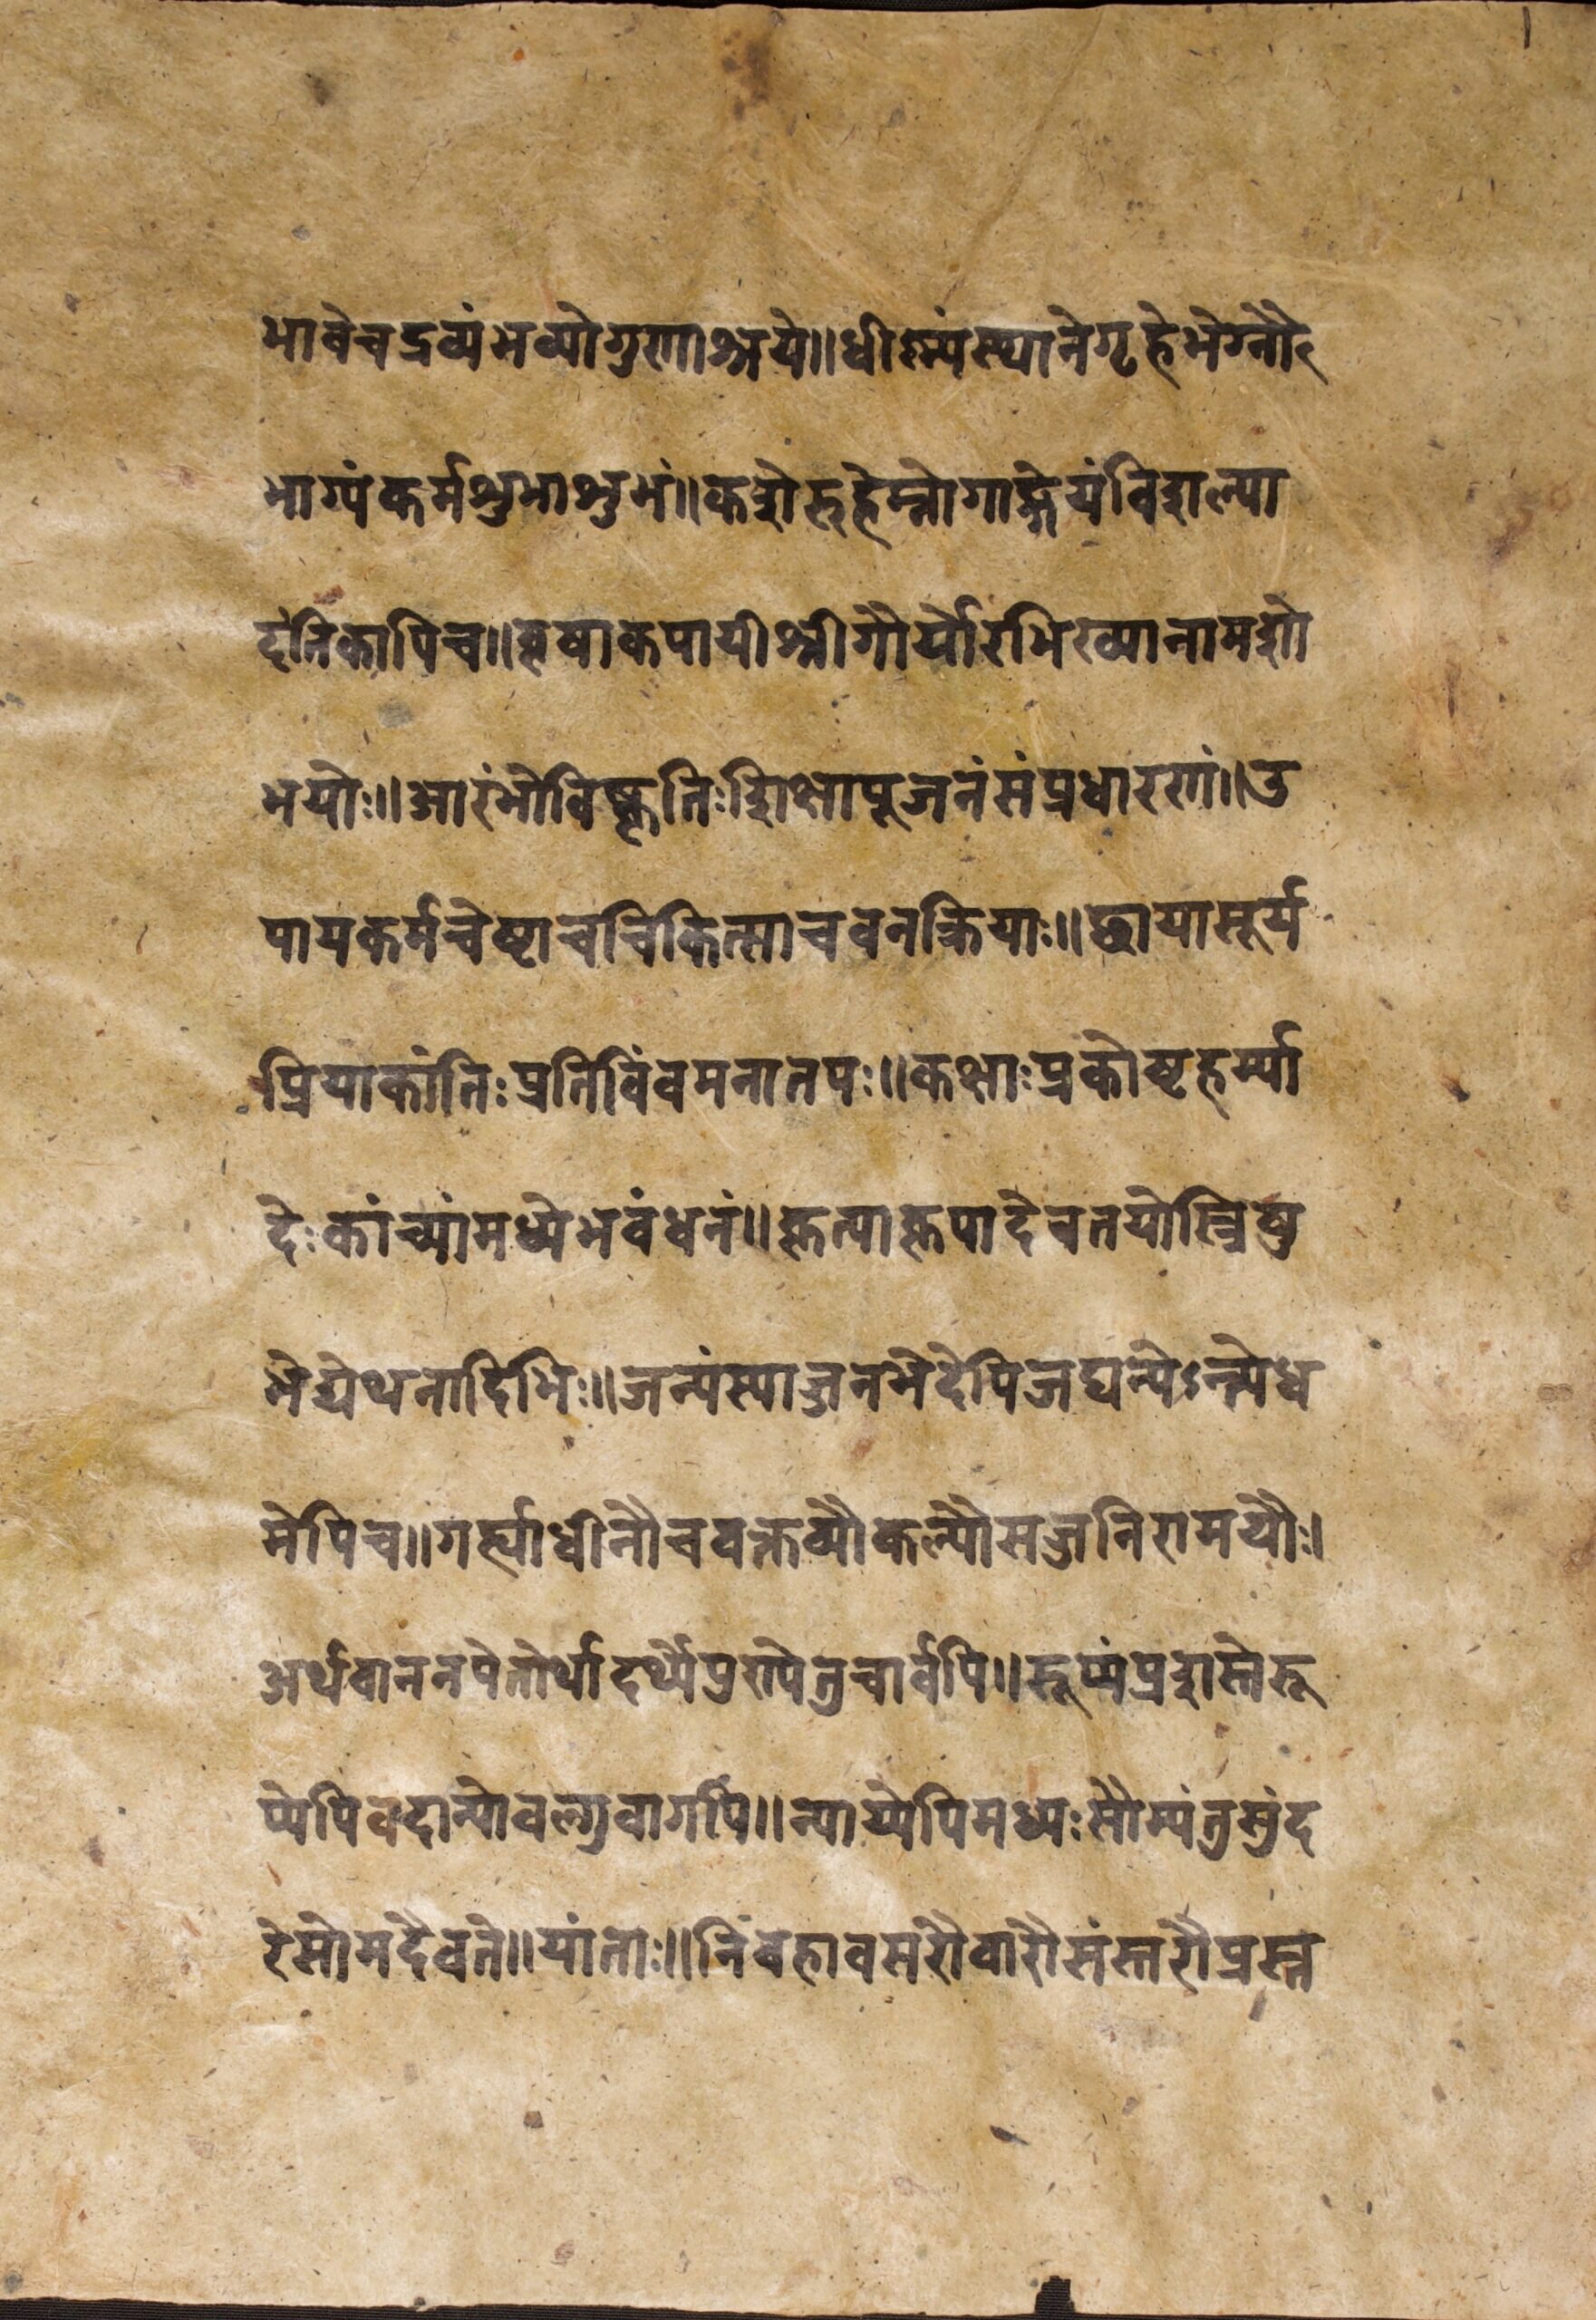 भावेचद्रव्यंभव्योगुणाश्रये॥धीष्ण्यंस्थानेगृहेभेग्नौ
भाग्यंकर्मशुभाशुभं॥कशेरुहेम्नोगाङ्गेयंविशल्या
दंतिकापिच॥वृषाकपायीश्रीगौर्योरभिख्यानामशो
भयोः॥आरंभोविष्कृतिःशिक्षापूजनंसंप्रधारणं॥उ
पायकर्मचेष्टाचचिकित्साचवनक्रियाः॥छायासूर्य
प्रियाकांतिःप्रतिविंवमनातपः॥कक्षाःप्रकोष्टहर्म्या
देःकांच्यांमध्येभवंधनं॥कृत्याकृपादेवतयोस्त्रिषु
भेद्येथनादिभिः॥जन्यंस्याज्जनभेदेपिजघन्येऽन्त्येध
मेपिच॥गर्ह्याधीनौचवक्तव्यौकल्यौसज्जनिरामयौः।
अर्थवाननपेतोर्थादर्थ्यैपुरापेतुचार्वपि॥रूप्यंप्रशस्तेरू
प्येपिवदान्योवल्गुवागपि॥न्याय्येपिमध्यःसौम्यंतुसुंद
रेसोमदैवते॥यांताः॥निवहावसरौवारौसंस्तरौप्रस्त